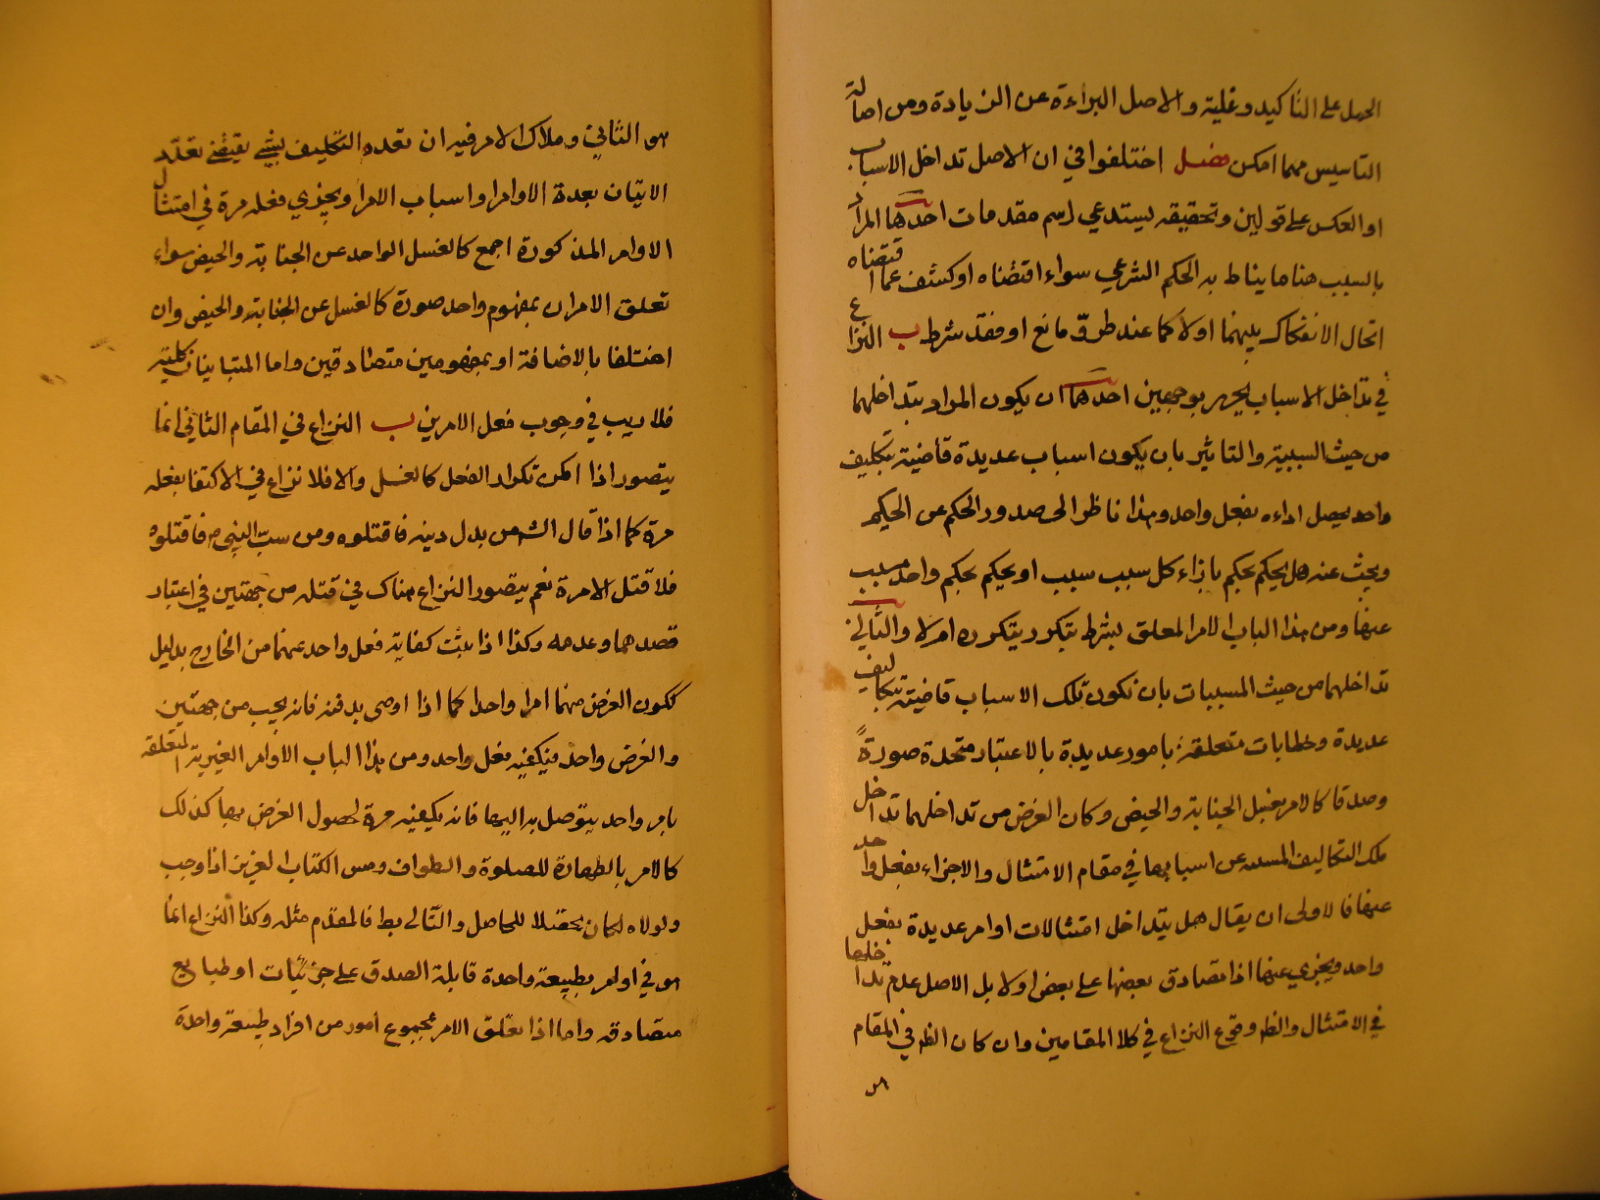 الحمل على التاكيد وغلبته والاصل البراءة عن الزيادة ومن اصالة
التاسيس مهما امكن فصل اختلفوا في ان الاصل تداخل الاسباب
او العكس على قولين وتحقيقه يستدعي رسم مقدمات احدها المراد
بالسبب هنا ما يناط به الحكم الشرعي سواء اقتضاه او كشف عما اقتضاه
الحال الانفكاك بينهما اولا كما عند طرق مانع او فقد شرط ب النزاع
في تداخل الاسباب يحرر بوجهين احدهما ان يكون المراد بتداخلهما
من حيث السببية والتاثير بان يكون اسباب عديدة قاضية بتكليف
واحد يحصل اداءه بفعل واحد وهذا ناظر الى صدور الحكم عن الحكيم
ويبحث عنه هل يحكم بحكم بازاء كل سبب سبب او يحكم بحكم واحد مسبب
عنها ومن هذا الباب الامر المعلق بشرط يتكرر بتكرره ام لا والثاني
تداخلهما من حيث المسببات بان تكون تلك الاسباب قاضية بتكاليف
عديدة وخطابات متعلقة بامور عديدة بالاعتبار متحدة صورةً
وصدقا كالامر بغسل الجنابة والحيض وكان الغرض من تداخلهما تداخل
تلك التكاليف المسببة عن اسبابها في مقام الامتثال والاجزاء بفعل واحد
عنها فالاولى ان يقال هل يتداخل امتثالات اوامر عديدة بفعل
واحد ويجزي عنها اذا تصادق بعضها على بعض اولا بل الاصل عدم تداخلها
في الامتثال والظ وقوع النزاع في كلا المقامين وان كان الظ في المقام
هو الثاني وملاك الامر فيه ان تعدد التكليف بشيء يقتضي تعدد
الاتيان بعدة الاوامر واسباب الامر او يجزي فعله مرة في امتثال
الاوامر المذكورة اجمع كالغسل الواحد عن الجنابة والحيض سواء
تعلق الامران بمفهوم واحد صورة كالغسل عن الجنابة والحيض وان
اختلفا بالاضافة او بمفهومين متصادقين واما المتباينان كلية
فلا ريب في وجوب فعل الامرين ب النزاع في المقام الثاني انما
يتصور اذا امكن تكرار الفعل كالغسل والا فلا نزاع في الاكتفا بفعله
مرة كما اذا قال الش من بدل دينه فاقتلوه ومن سبّ النبي ص فاقتلوه
فلا قتل الا مرة نعم يتصور النزاع هناك في قتله من جهتين في اعتبار
قصدهما وعدمه وكذا اذا ثبت كفاية فعل واحد عنهما من الخارج بدليل
ككون الغرض منهما امرا واحدا كما اذا اوصى بدفنه فانه يجب من جهتين
والغرض واحد فيكفيه فعل واحد ومن هذا الباب الاوامر الغيرية المتعلقة
بامر واحد يتوصل به اليها فانه يكفيه مرة لحصول الغرض بها كذلك
كالامر بالطهارة للصلوة والطواف ومس الكتاب العزيز اذا وجب
ولولاه لكان تحصيلا للحاصل والتالي بط فالمقدم مثله وكذا النزاع انما
هو في اوامر بطبيعة واحدة قابلة الصدق على جزئيات او طبايع
متصادقه واما اذا تعلق الامر بمجموع امور من افراد طبيعة واحدة